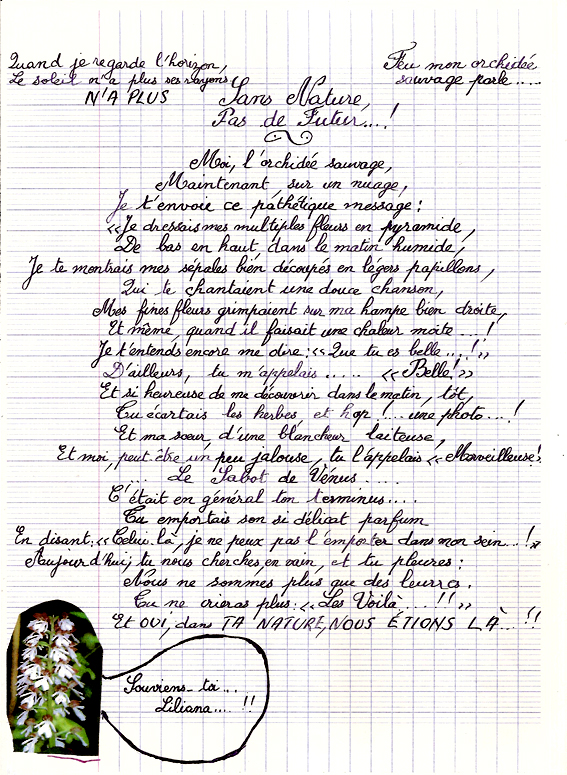 Quand je regarde l'horizon,
Le soleil n'a plus ses rayons
N'A PLUS
Feu mon orchidée
sauvage parle.....
Sans Nature,
Pas de Futur...!
Moi, l'orchidée sauvage,
Maintenant, sur un nuage,
Je t'envoie ce pathétique message:
«Je dressais mes multiples fleurs en pyramide,
De bas en haut, dans le matin humide,
Je te montrais mes sépales bien découpés en légers papillons,
Qui te chantaient une douce chanson,
Mes fines fleurs grimpaient sur ma hampe bien droite,
Et même, quand il faisait une chaleur moite...!
Je t'entends encore me dire: «Que tu es belle...!»
D'ailleurs, tu m'appelais..... «Belle!»
Et si heureuse de me découvrir dans le matin, tôt,
Tu écartais les herbes et hop!... une photo...!
Et ma sœur, d'une blancheur laiteuse,
Et moi, peut être un peu jalouse, tu l'appelais «Merveilleuse!
.... Le Sabot de Vénus....
C'était en général ton terminus....
Tu emportais son si délicat parfum
En disant: «Celui là, je ne peux pas l'emporter dans mon sein...!»
Aujourd'hui, tu nous cherches, en vain, et tu pleures:
Nous ne sommes plus que des leurres.
Tu ne crieras plus: «Les Voilà...!!»
Et OUI, dans TA NATURE, NOUS ÉTIONS LÀ...!!
Souviens-toi...
Liliana....!!